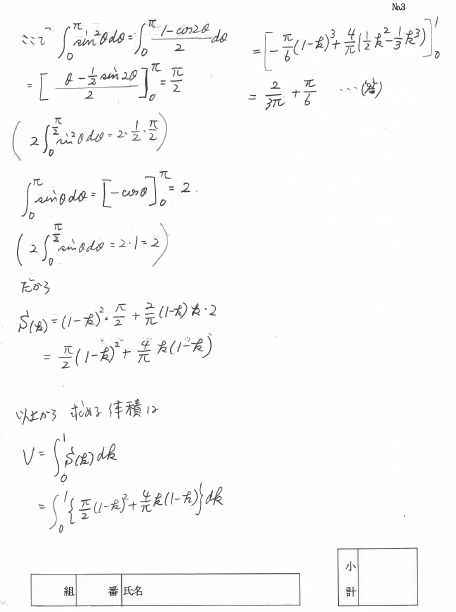 No.3
ここで ∫₀^π sin²θdθ = ∫₀^π (1-cos2θ)/2 dθ
= [ (θ - ½ sin2θ)/2 ]₀^π = π/2
( 2∫₀^(π/2) sin²θdθ = 2・1/2・π/2 )
∫₀^π sinθdθ = [-cosθ]₀^π = 2.
( 2∫₀^(π/2) sinθdθ = 2・1 = 2 )
だから
S(k) = (1-k)²・π/2 + 2/π (1-k)k・2
= π/2 (1-k)² + 4/π k(1-k)
以上から 求める 体積は
V = ∫₀¹ S(k)dk
= ∫₀¹ { π/2 (1-k)² + 4/π k(1-k) } dk
= [ -π/6 (1-k)³ + 4/π (½k² - ⅓k³) ]₀¹
= 2/3π + π/6 …(答)
組 番 氏名
小計